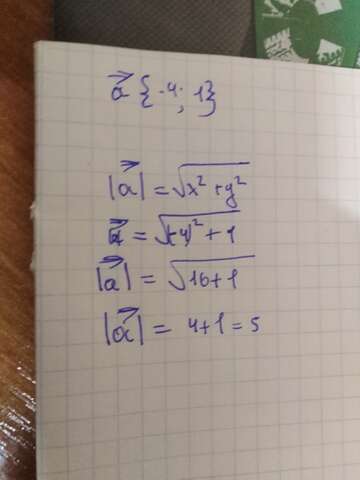 a⃗ {-4; 1}
|a⃗| = √x² + y²
a⃗ = √(-4)² + 1
|a⃗| = √16+1
|a⃗| = 4+1 = 5